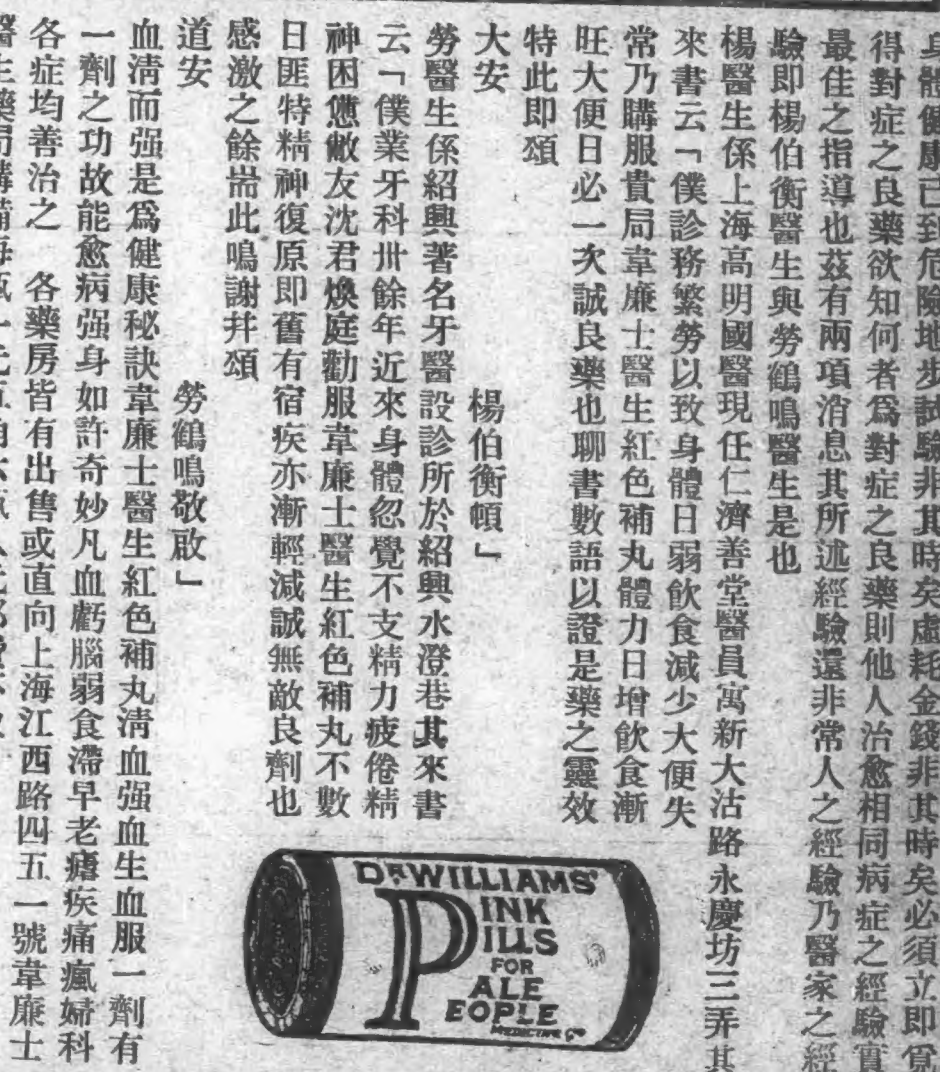 身體健康已到危險地步試驗非其時矣虛耗金錢非其時矣必須立即覓
得對症之良藥欲知何者爲對症之良藥則他人治愈相同病症之經驗實
最佳之指導也茲有兩項消息其所述經驗還非常人之經驗乃醫家之經
驗即楊伯衡醫生與勞鶴鳴醫生是也
楊醫生係上海高明國醫現任仁濟善堂醫員寓新大沽路永慶坊三弄其
來書云「僕診務繁勞以致身體日弱飲食減少大便失
常乃購服貴局韋廉士醫生紅色補丸體力日增飲食漸
旺大便日必一次誠良藥也聊書數語以證是藥之靈效
特此即頌
大安 楊伯衡頓」
勞醫生係紹興著名牙醫設診所於紹興水澄巷其來書
云「僕業牙科卅餘年近來身體忽覺不支精力疲倦精
神困憊敝友沈君煥庭勸服韋廉士醫生紅色補丸不數
日匪特精神復原即舊有宿疾亦漸輕減誠無敵良劑也
感激之餘耑此鳴謝并頌
道安 勞鶴鳴敬啟」
血清而强是爲健康秘訣韋廉士醫生紅色補丸清血强血生血服一劑有
一劑之功故能愈病强身如許奇妙凡血虧腦弱食滯早老瘧疾痛瘋婦科
各症均善治之 各藥房皆有出售或直向上海江西路四五一號韋廉士
DR WILLIAMS'
PINK
PILLS
FOR
PALE
PEOPLE
MEDICINE Co